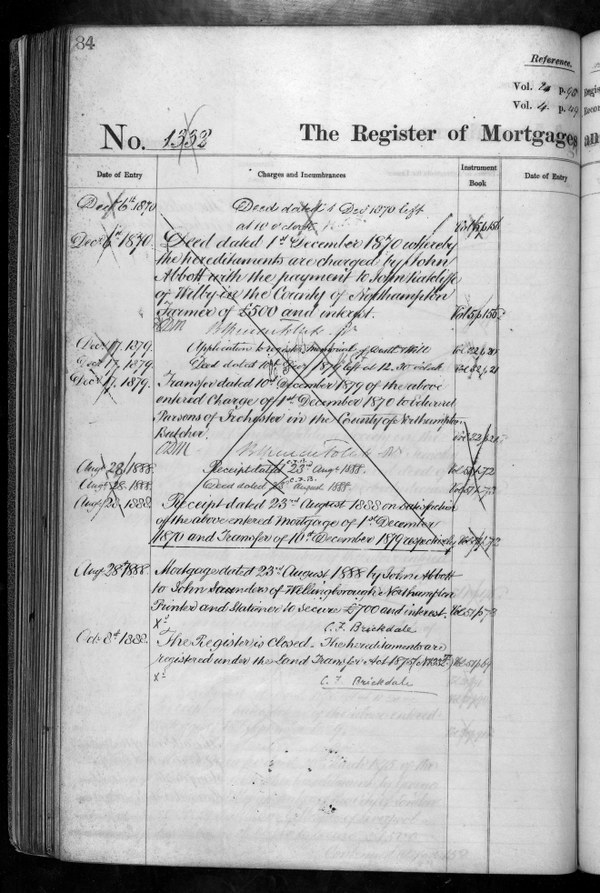 84
Reference.
Vol. 2 p. 90
Vol. 4. p. 49
No. 1332 The Register of Mortgages
Date of Entry Charges and Incumbrances Instrument Book Date of Entry
Decr 6th 1870 Deed dated 1 Decr 1870 left
at 10 o'clock
Decr 6th 1870. Deed dated 1st December 1870 whereby
the hereditaments are charged by John
Abbott with the payment to John
of Wilby in the County of Northampton
Farmer of £500 and interest.
Decr 17. 1879. Application to register
Decr 17. 1879. Deed dated 10th Decr 1879 left at 12.30 o'clock
Decr 17. 1879. Transfer dated 10th December 1879 of the above
entered Charge of 1st December 1870 to Edward
Parsons of Irchester in the County of Northampton
Butcher.
Augt 28. 1888. Receipt dated 23rd Augt 1888.
Augt 28. 1888. Deed dated August 1888.
Augt 28. 1888. Receipt dated 23rd August 1888 on satisfaction
of the above entered Mortgage of 1st December
1870 and Transfer of 10th December 1879 respectively
Augt 28th 1888. Mortgage dated 23rd August 1888 by John Abbott
to John Saunders of Wellingborough Northampton
Printer and Stationer to secure £700 and interest.
C. F. Brickdale
Octr 8th 1888. The Register is Closed. The hereditaments are
registered under the Land Transfer Act 1875
C. F. Brickdale